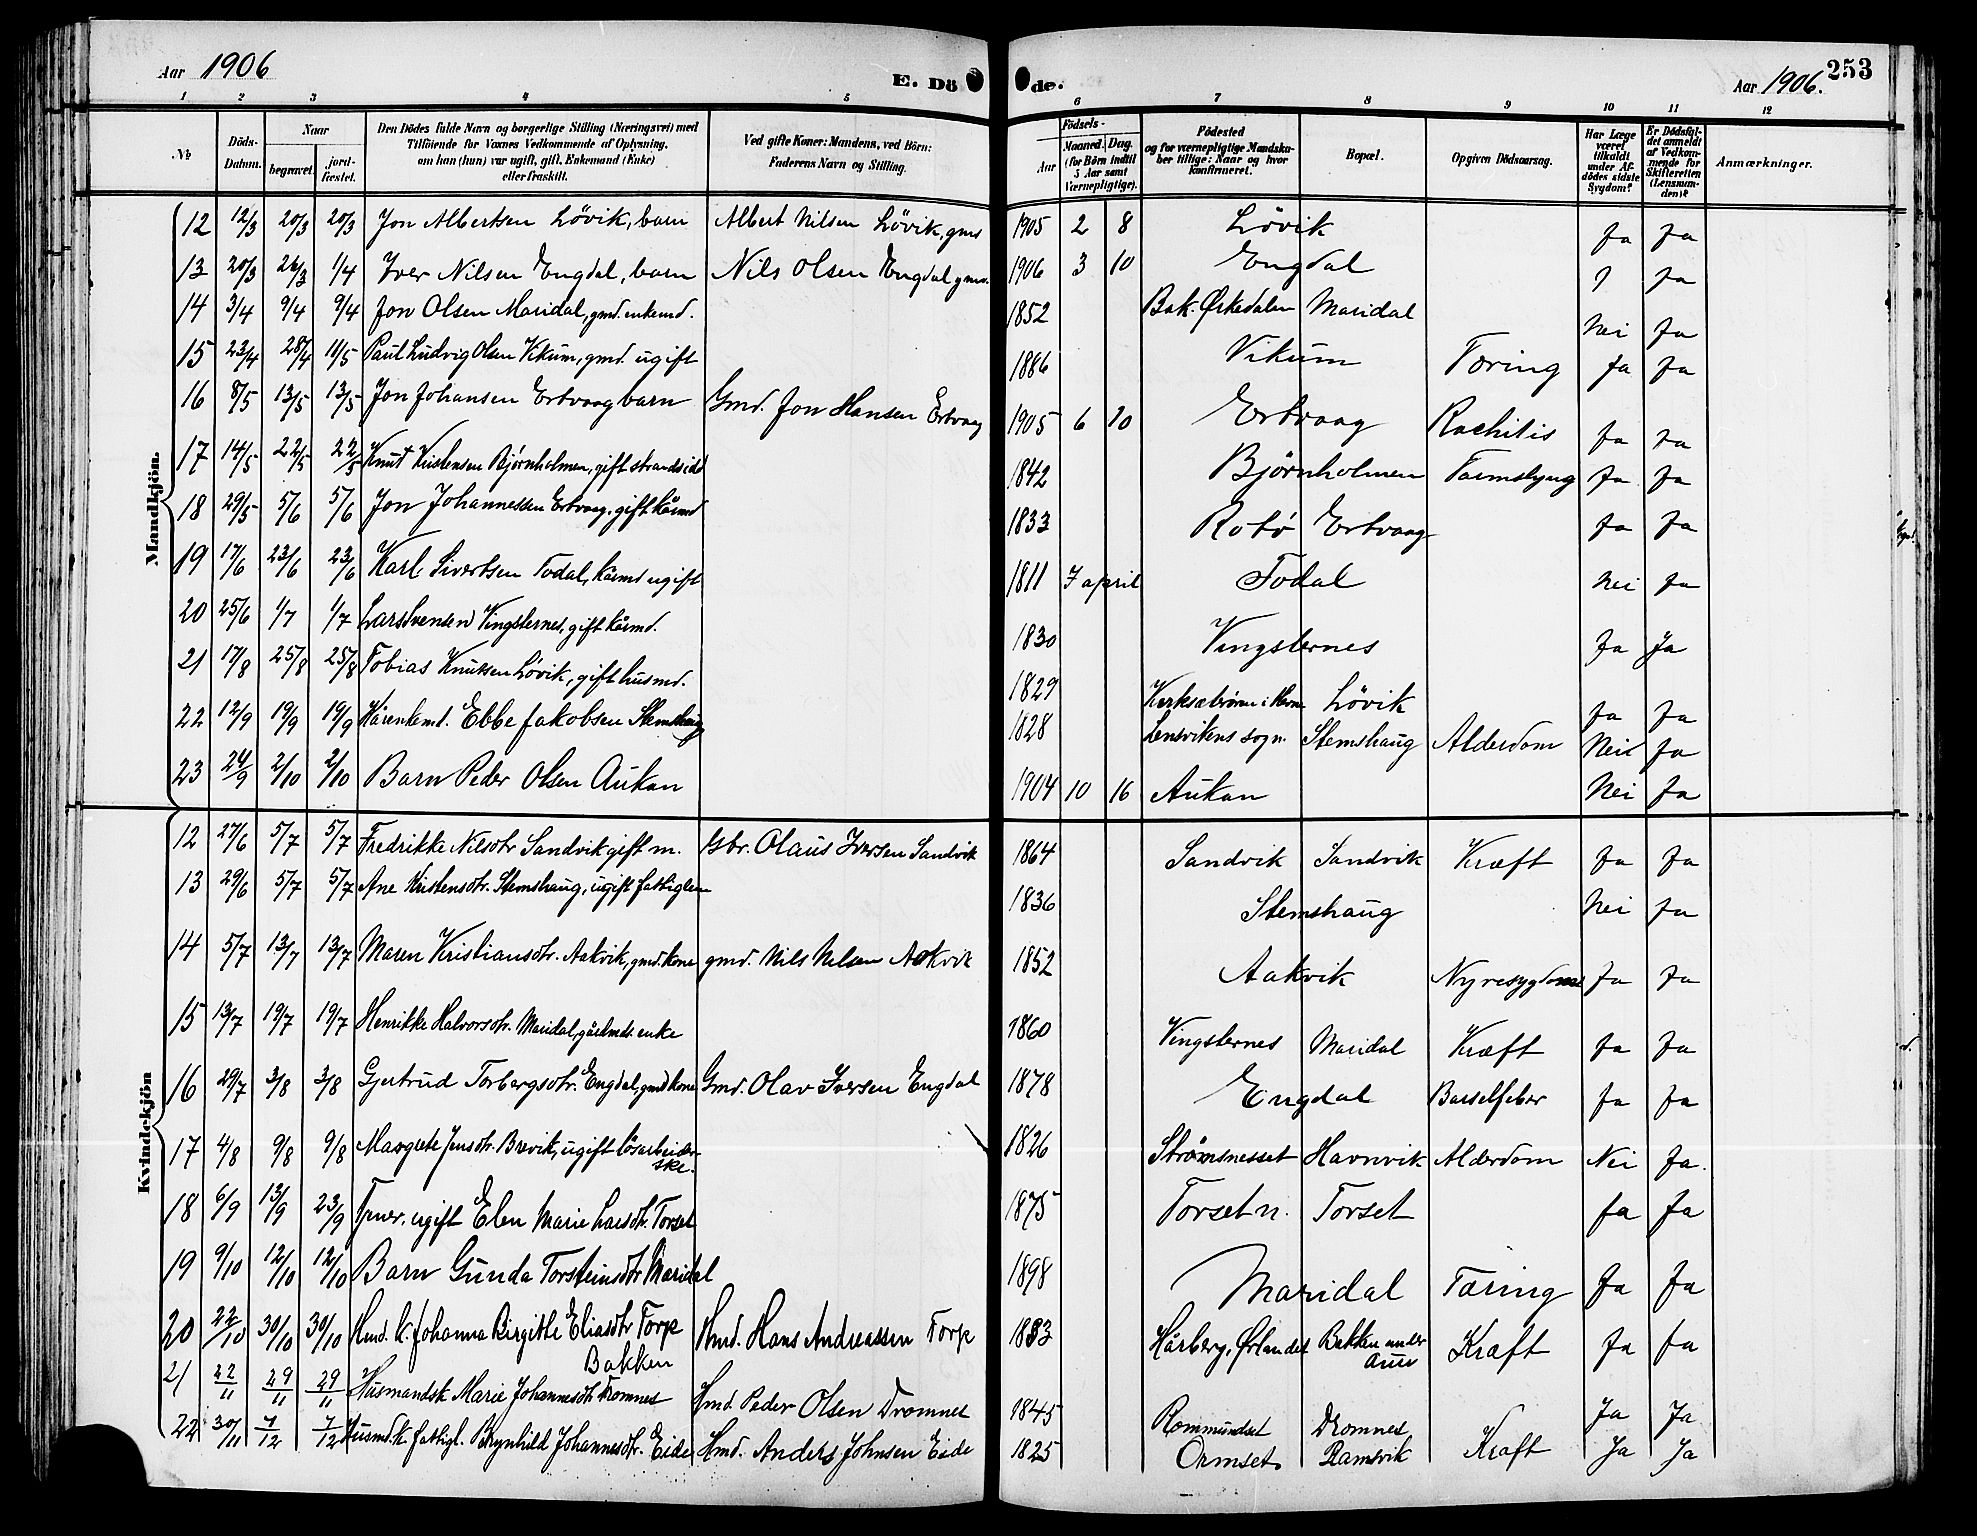 Aar 1906
E. Dö de.
Aar 1906.
253
1 2 3 4 5 6 7 8 9 10 11 12
No
Döds-Datum.
Naar
begravet.
jord-fæstet.
Den Dödes fulde Navn og borgerlige Stilling (Næringsvei) med Tilföiende for Voxnes Vedkommende af Oplysning, om han (hun) var ugift, gift, Enkemand (Enke) eller fraskilt.
Ved gifte Koner: Mandens, ved Börn: Faderens Navn og Stilling.
Födsels-
Aar
Maaned. Dag.
(for Börn indtil 5 Aar samt Værnepligtige).
Födested og for værnepligtige Mandskaber tillige: Naar og hvor konfirmeret.
Bopæl.
Opgiven Dödsaarsag.
Har Læge været tilkaldt under Afdödes sidste Sygdom?
Er Dödsfaldet anmeldt af Vedkommende for Skifteretten (Lensmanden)?
Anmærkninger.
Mandkjön.
12 12/3 20/3 20/3 Jon Albertsen Lövik, barn Albert Nilsen Lövik, gmd 1905 2 8 Lövik Ja Ja
13 20/3 26/3 1/4 Iver Nilsen Engdal, barn Nils Olsen Engdal gmd. 1906 3 10 Engdal Ja
14 3/4 9/4 9/4 Jon Olsen Maridal, gmd. enkemd. 1852 Bak. Ørkedalen Maridal Nei Ja
15 23/4 28/4 11/5 Paul Ludvig Olsen Vikum, gmd. ugift 1886 Vikum Tæring Ja Ja
16 8/5 13/5 13/5 Jon Johansen Ertvaag barn Gmd. Jon Hansen Ertvaag 1905 6 20 Ertvaag Rachitis Ja Ja
17 14/5 22/5 22/5 Knut Kristensen Bjørnholmen, gift strandsid 1842 Björnholmen Tarmslyng Ja Ja
18 29/5 5/6 5/6 Jon Johannessen Ertvaag, gift kåmd 1833 Rotö Ertvaag Ja Ja
19 17/6 23/6 23/6 Karl Sivertsen Todal, kårmd ugift 1811 7 april Todal Nei Ja
20 25/6 1/7 1/7 Lars Svensen Vingsternes, gift kårmd. 1830 Vingsternes Ja Ja
21 17/8 25/8 25/8 Tobias Knutsen Lövik, gift husmd. 1829 Lövik Ja Ja
22 12/9 19/9 19/9 Kårenkemd. Ebbe Jakobsen Stemshaug 1828 Lensvikens sogn. Stemshaug Alderdom Nei Ja
23 24/9 2/10 2/10 Barn Peder Olsen Aukan 1904 10 16 Aukan Nei Ja
Kvindekjön
12 27/6 5/7 5/7 Fredrikke Nilsdtr Sandvik gift m. Gbr. Olaus Iversen Sandvik 1864 Sandvik Sandvik Kræft Ja Ja
13 29/6 5/7 5/7 Ane Kristensdtr. Stemshaug, ugift fattiglem 1836 Stemshaug Nei Ja
14 5/7 13/7 13/7 Maren Kristiansdtr. Aakvik, gmd. kone gmd. Nils Nilsen Aakvik 1852 Aakvik Nyresygdom Ja Ja
15 13/7 19/7 19/7 Henrikke Halvorsdtr. Maridal, gårdmds. enke 1860 Vingsternes Maridal Kræft Ja Ja
16 29/7 3/8 3/8 Gjertrud Torbergsdtr. Engdal, gmd kone Gmd. Olav Iversen Engdal 1878 Engdal Barselfeber Ja Ja
17 4/8 9/8 9/8 Margrete Jensdtr. Brevik, ugift lösarbeiderske. 1826 Strømsnesset Havnvik Alderdom Nei Ja.
18 6/9 13/9 23/9 Tjener, ugift Elen Marie Larsdtr. Torset 1875 Torset n. Torset Ja Ja
19 9/10 12/10 12/10 Barn Gunda Torsteinsdtr Maridal 1898 Maridal Tæring Ja Ja
20 22/10 30/10 30/10 Hmd. k. Johanna Birgitte Eliasdtr Torp Bakken Hmd. Hans Andreassen Torp 1883 Hårberg, Ørlandet Bakken under Aure Kræft Ja Ja
21 22/11 29/11 29/11 Husmandsk Marie Johannesdtr Dromnes Hmd. Peder Olsen Dromnes 1845 Rommundset Dromnes Ja Ja
22 30/11 7/12 7/12 Husmd. k. fattigl. Brynhild Johannesdtr. Eide Hmd. Anders Johnsen Eide 1825 Ormset. Ramsvik Kræft Ja Ja